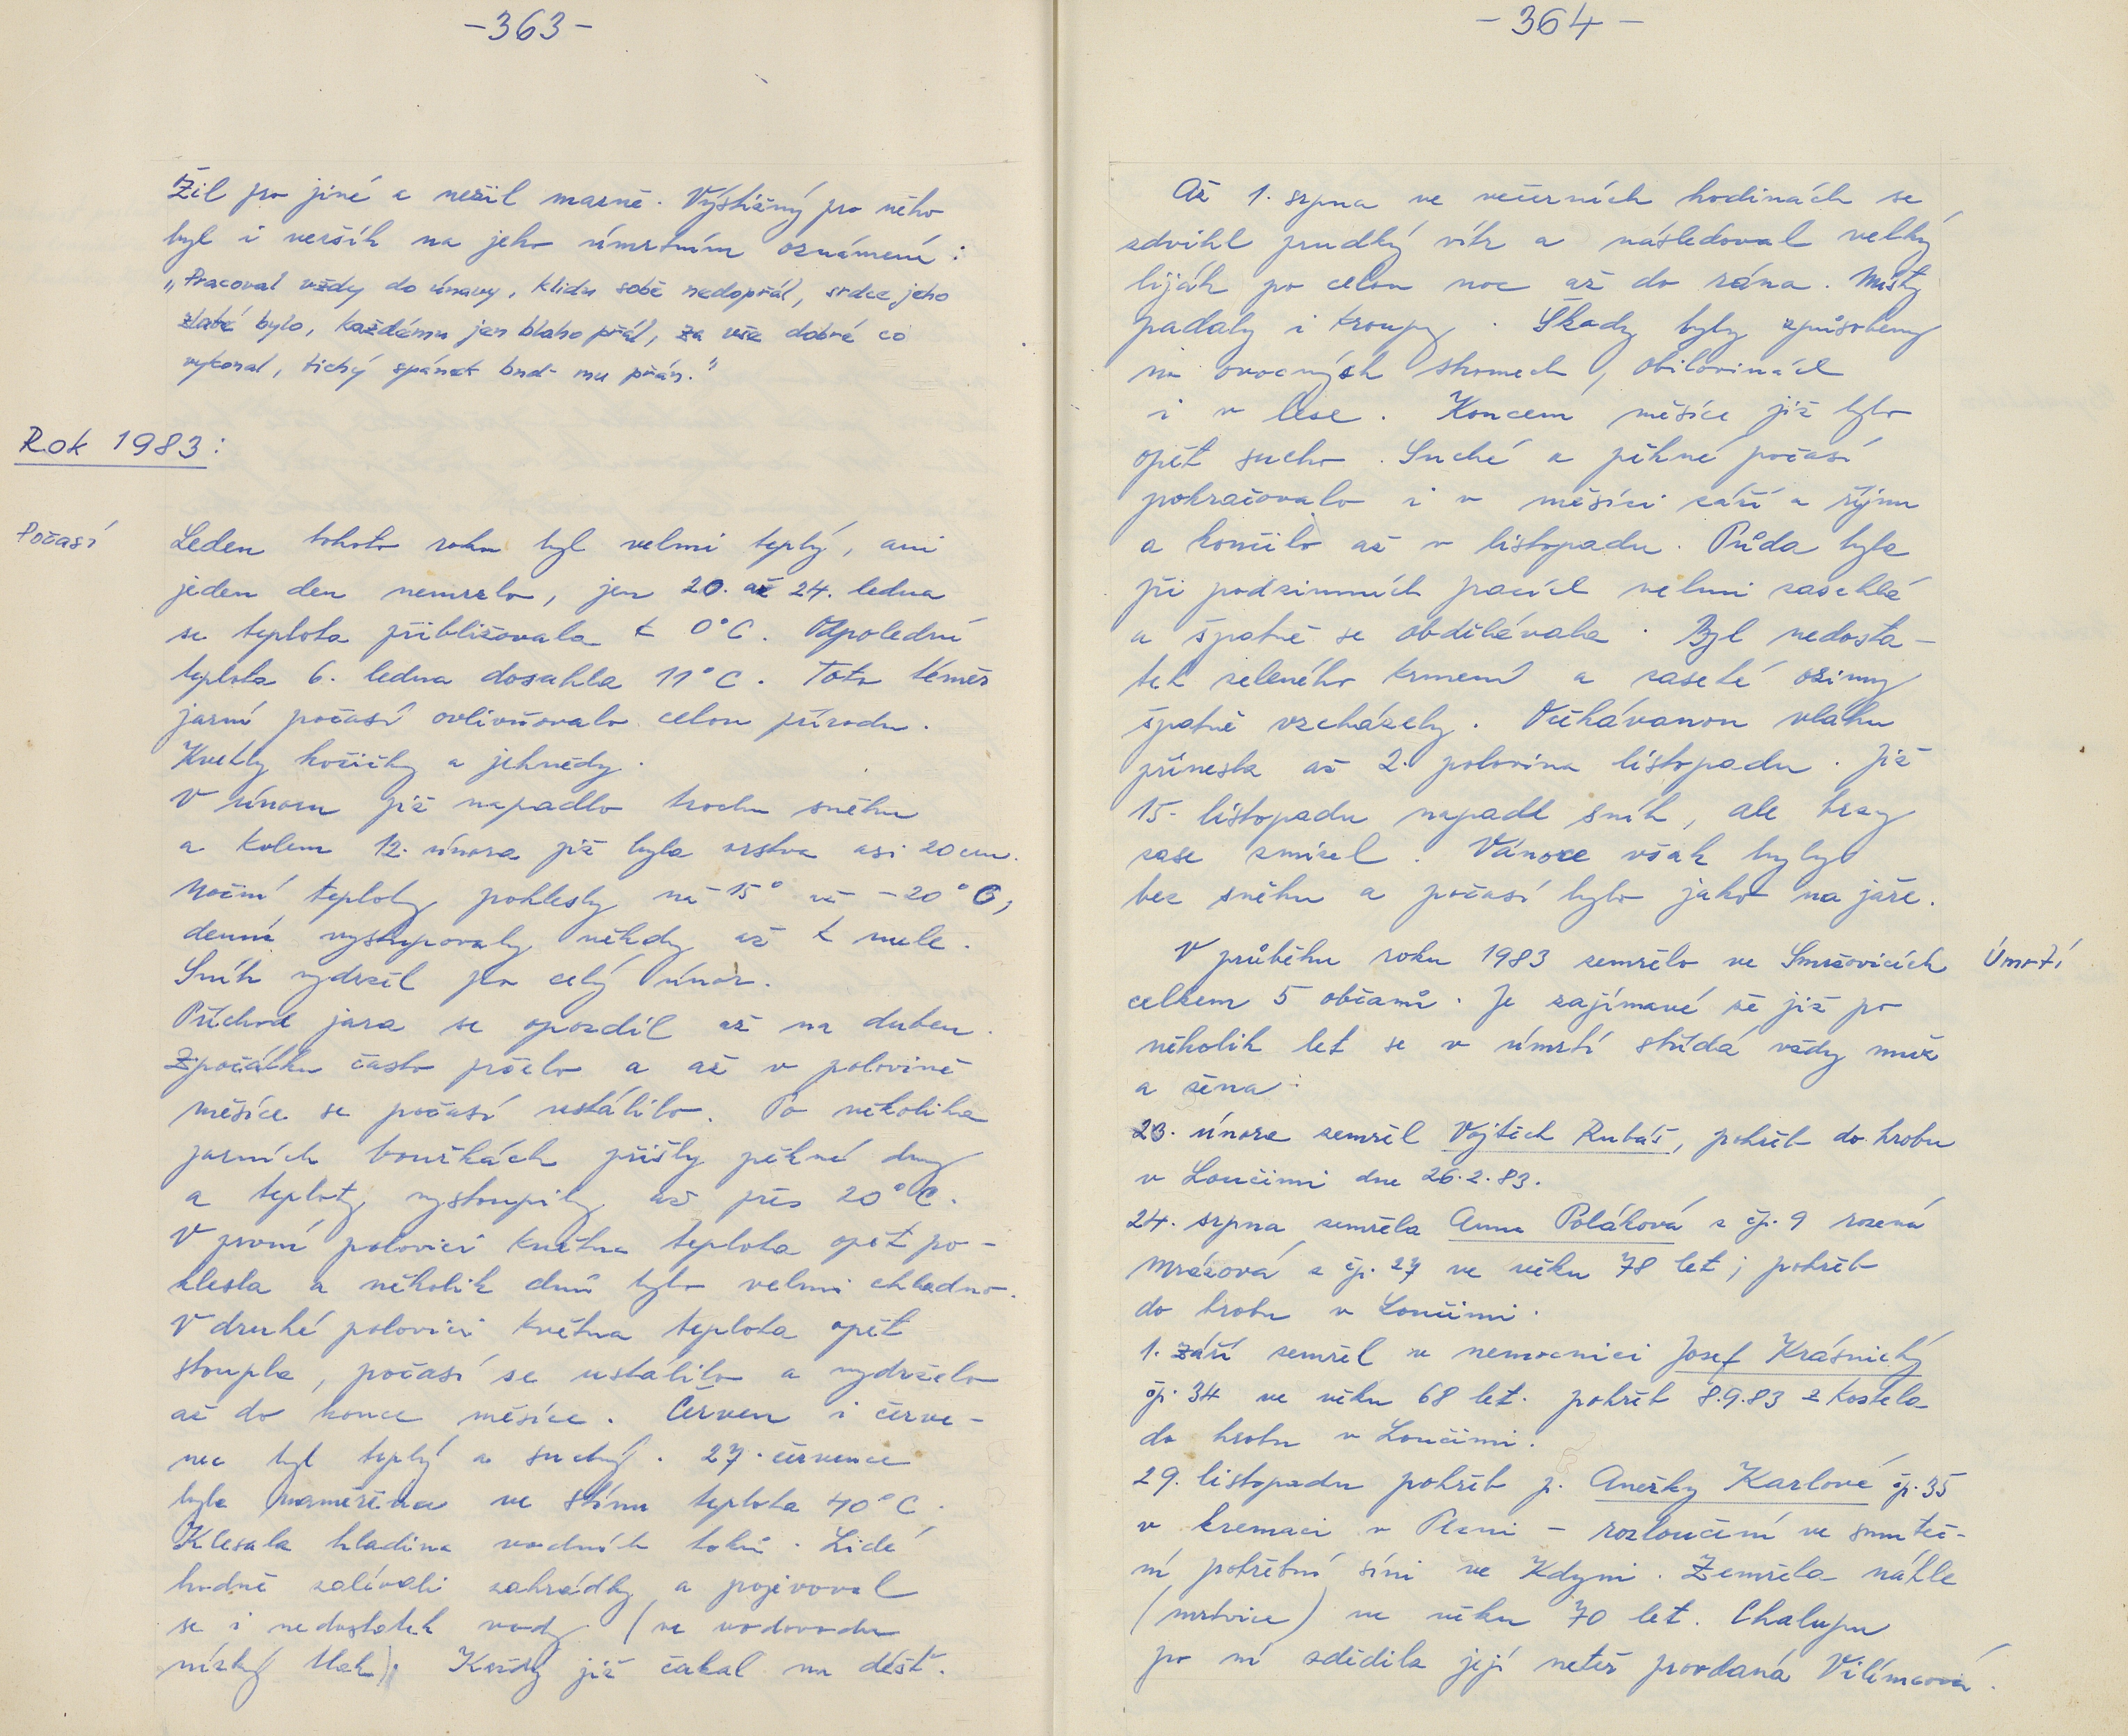 -363-
Žil pro jiné a nežil marně. Výstižný pro něho
byl i veršík na jeho úmrtním oznámení:
„Pracoval vždy do únavy, klidu sobě nedopřál, srdce jeho
zlaté bylo, každému jen blaho přál, za vše dobré co
vykonal, tichý spánek bud- mu přán."
Rok 1983:
Počasí
Leden tohoto roku byl velmi teplý, ani
jeden den nemrzlo, jen 20. až 24. ledna
se teplota přibližovala k 0°C. Odpolední
teplota 6. ledna dosahla 11°C. Toto téměř
jarní počasí ovlivňovalo celou přírodu.
Kvetly kočičky a jehnědy.
V únoru již napadlo trochu sněhu
a kolem 12. února již byla vrstva asi 20 cm.
Noční teploty poklesly na -15° až -20°C,
denní vystupovaly někdy až k nule.
Sníh vydržel po celý únor.
Příchod jara se opozdil až na duben.
Zpočátku často pršelo a až v polovině
měsíce se počasí ustálilo. Po několika
jarních bouřkách přišly pěkné dny
a teploty vystoupily až přes 20°C.
V první polovici května teplota opět po-
klesla a několik dnů bylo velmi chladno.
V druhé polovici května teplota opět
stoupla, počasí se ustálilo a vydrželo
až do konce měsíce. Červen i červe-
nec byl teplý a suchý. 27. července
byla naměřena ve stínu teplota 40°C.
Klesala hladina vodních toků. Lidé
hodně zalévali zahrádky a projevoval
se i nedostatek vody (ve vodovodu
nízký tlak). Každý již čekal na déšť.
-364-
Až 1. srpna ve večerních hodinách se
zdvihl prudký vítr a následoval velký
liják po celou noc až do rána. Místy
padaly i kroupy. Škody byly způsobeny
na ovocných stromech, obilovinách
i v lese. Koncem měsíce již bylo
opět sucho. Suché a pěkné počasí
pokračovalo i v měsíci září a říjnu
a končilo až v listopadu. Půda byla
při podzimních pracích velmi zaschlá
a špatně se obdělávala. Byl nedosta-
tek zeleného krmení a zaseté oziny
špatně vzcházely. Očekávanou vláhu
přinesla až 2. polovina listopadu. Již
15. listopadu napadl sníh, ale brzy
zase zmizel. Vánoce však byly
bez sněhu a počasí bylo jako na jaře.
V průběhu roku 1983 zemřelo ve Smržovicích
Úmrtí
celkem 5 občanů. Je zajímavé že již po
několik let se v úmrtí střídá vždy muž
a žena:
23. února zemřel Vojtěch Rubáš, pohřeb do hrobu
v Loučimi dne 26.2.83.
24. srpna zemřela Anna Poláková z čp. 9 rozená
Mrázová z čp. 27 ve věku 78 let; pohřeb
do hrobu v Loučimi.
1. září zemřel v nemocnici Josef Krásnický
čp. 34 ve věku 68 let. pohřeb 8.9.83 z kostela
do hrobu v Loučimi.
29. listopadu pohřeb p. Anežky Karlové čp. 35
v kremaci v Plzni - rozloučení ve smuteč-
ní pohřební síni ve Kdyni. Zemřela náhle
(mrtvice) ve věku 70 let. Chalupu
po ní zdědila její neteř provdaná Vilímcová.